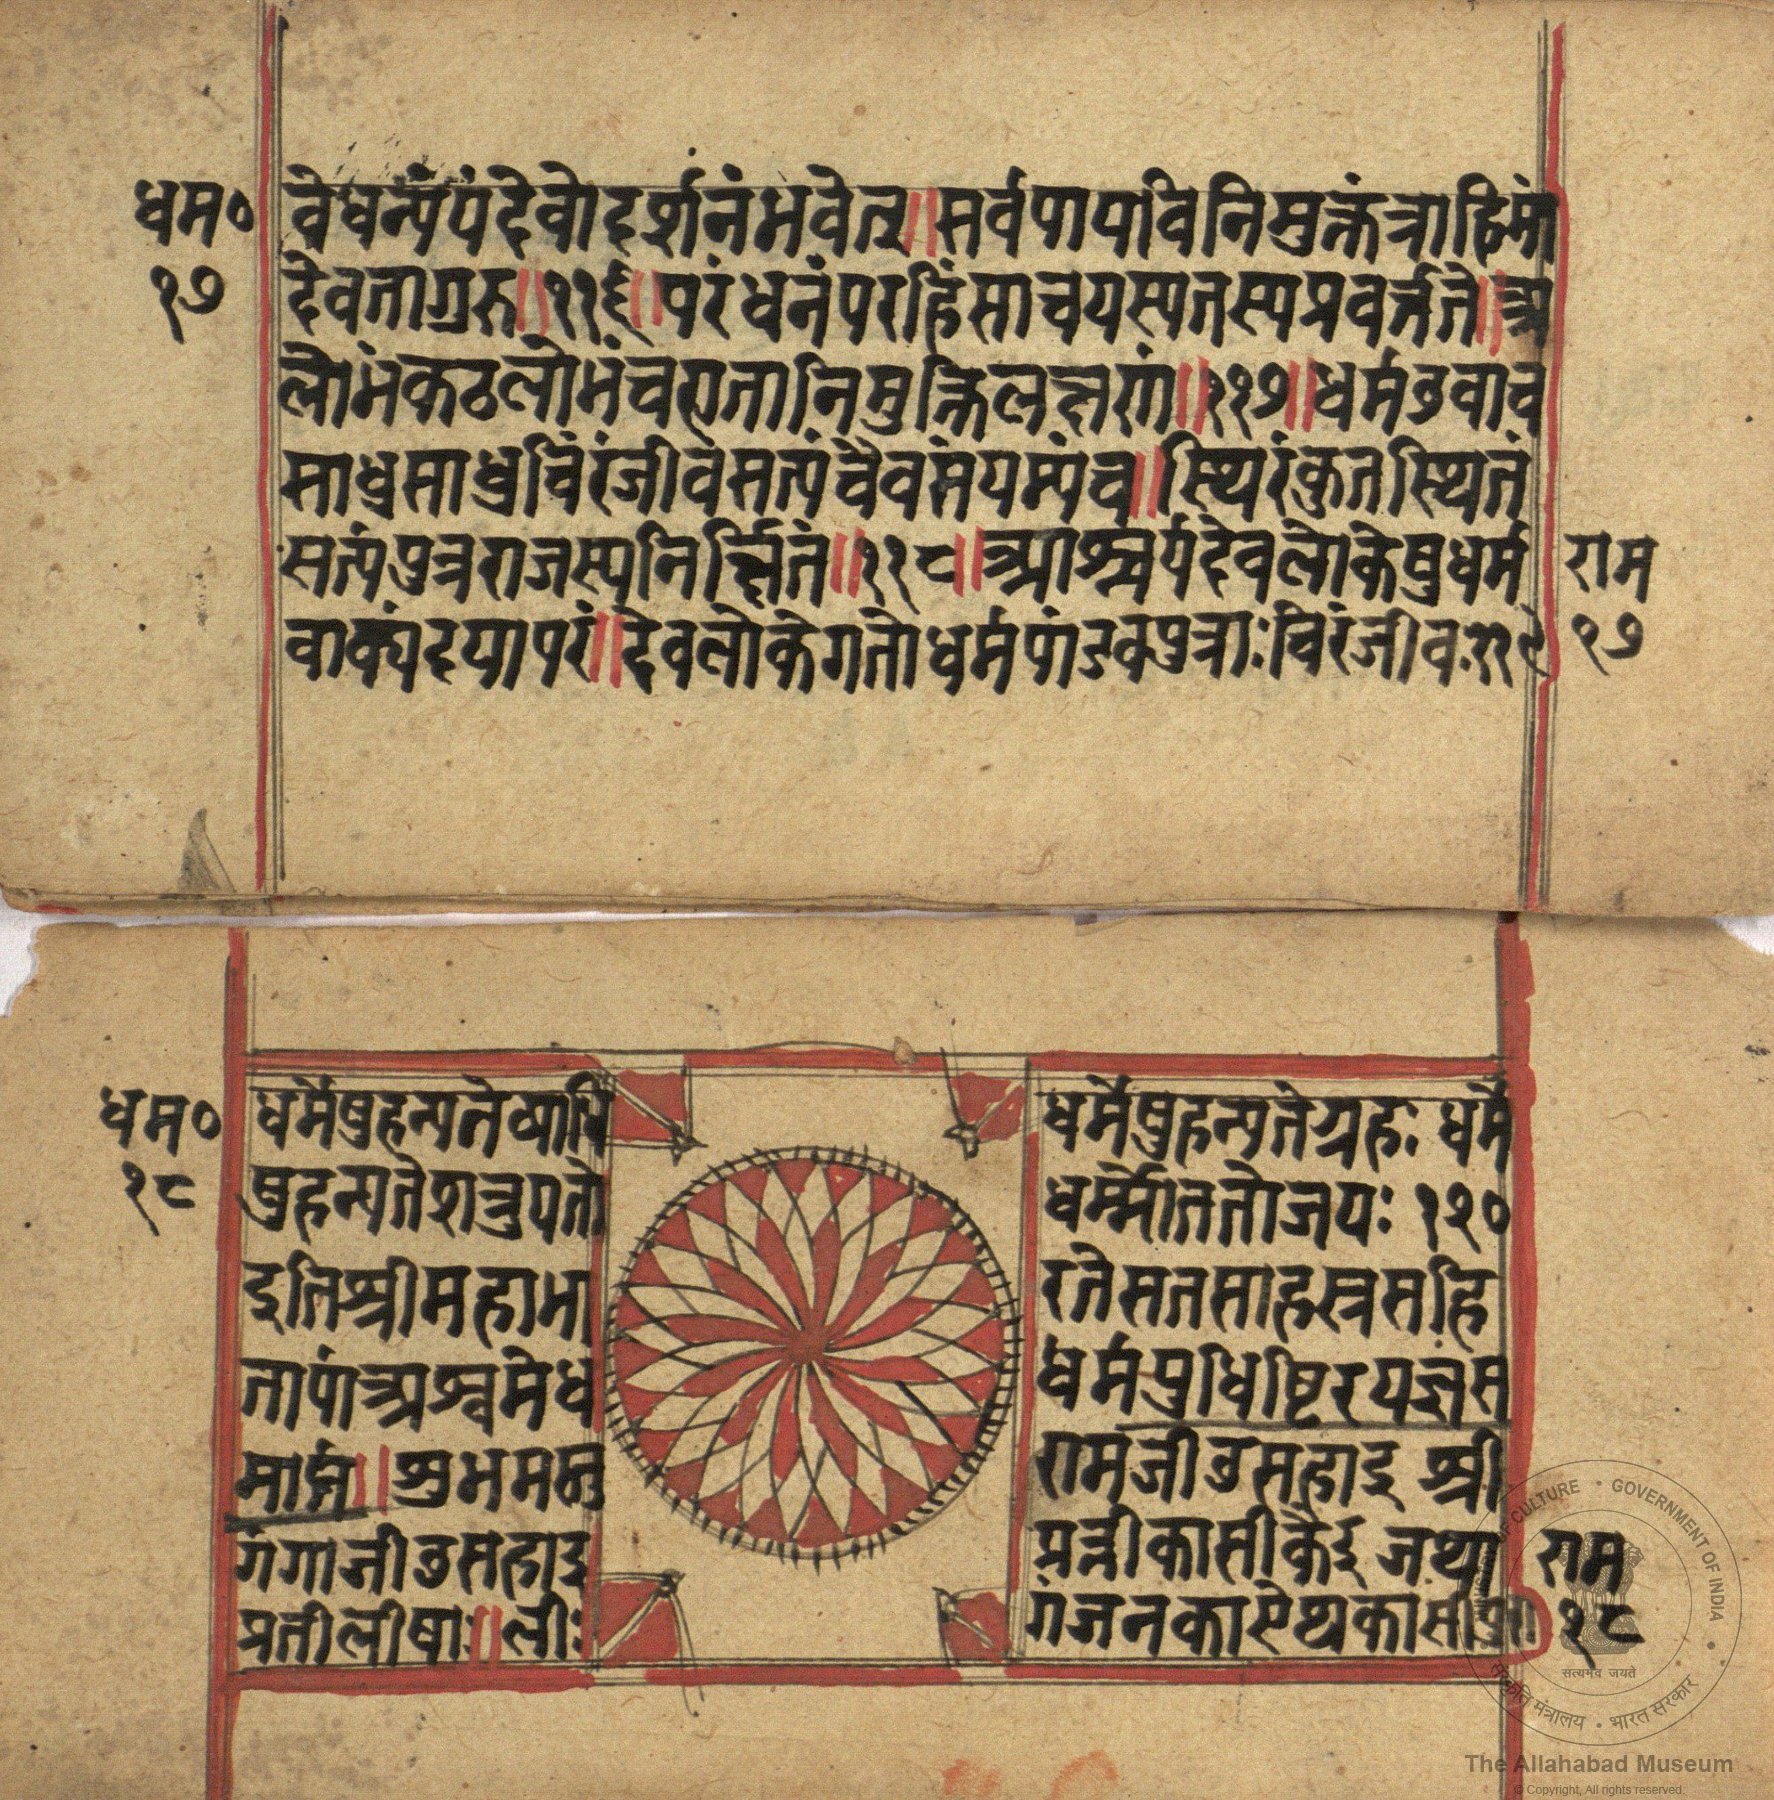 धम० वेधन्यंपंदेवोदर्शनंभवेत्र॥सर्वपापाविनिमुक्तंत्राहिमां
१७ देवतागुरु॥११६॥परंधनंपरहिंसाचयस्यतस्यप्रवर्त्तते॥अ
लोमंकठलोमंचह्यतानिमुक्तिलक्षणां॥११७॥धर्मउवाच
साधुसाधुचिरंजीवसत्यंचैवसंयम्यंच॥स्थिरंकुतस्थितं
सत्यंपुत्रराजस्यनिर्जितं॥११८॥आश्चर्यदेवलोकेषुधर्म राम
वाक्यंदयापरं॥देवलोकेगतोधर्मपांडवपुत्राःचिरंजीवः११९ १७
धम० धर्मेषुहन्यतेव्याधि धर्मेषुहन्यतेग्रहः धर्मे
१८ षुहन्यतेशत्रुयतो धर्म्मोततोजयः १२०
इतिश्रीमहाभा रतेसतसाहस्त्रसंहि
तायांअश्वमेध धर्मयुधिष्टिरयज्ञस
माप्तं॥शुभमस्तु रामजीउसहाइ श्री
गंगाजीउसहाइ पत्रीकासीकेइ जथा राम
प्रतीलीषाः॥लीः गंजनकाऐथकासी १८
MINISTRY OF CULTURE • GOVERNMENT OF INDIA
सत्यमेव जयते
संस्कृति मंत्रालय • भारत सरकार
The Allahabad Museum
© Copyright, All rights reserved.